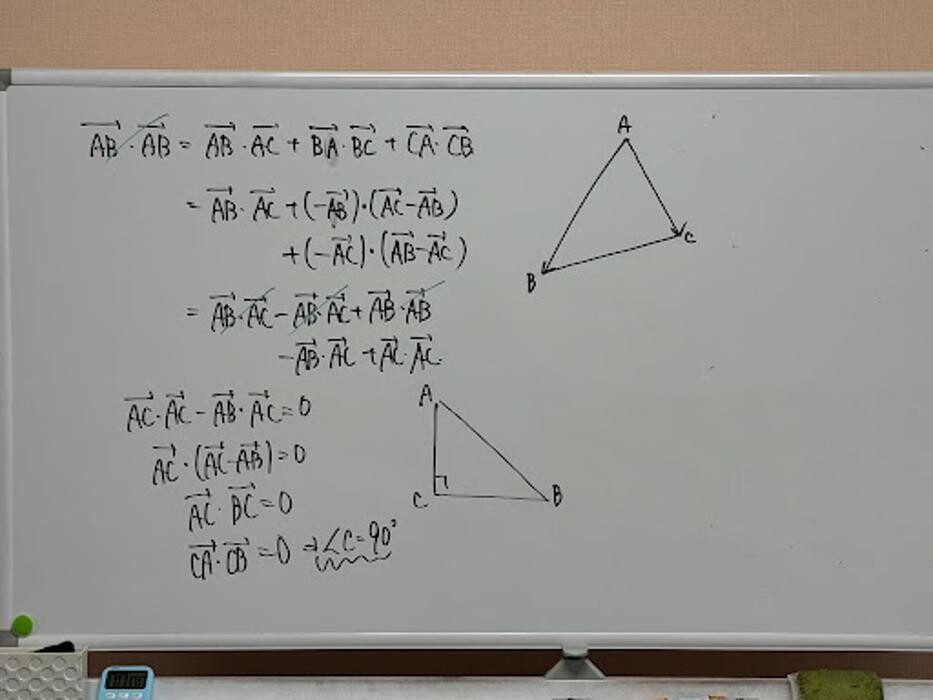 $\overrightarrow{AB} \cdot \overrightarrow{AB} = \overrightarrow{AB} \cdot \overrightarrow{AC} + \overrightarrow{BA} \cdot \overrightarrow{BC} + \overrightarrow{CA} \cdot \overrightarrow{CB}$
$= \overrightarrow{AB} \cdot \overrightarrow{AC} + (-\overrightarrow{AB}) \cdot (\overrightarrow{AC} - \overrightarrow{AB})$
$+ (-\overrightarrow{AC}) \cdot (\overrightarrow{AB} - \overrightarrow{AC})$
$= \overrightarrow{AB} \cdot \overrightarrow{AC} - \overrightarrow{AB} \cdot \overrightarrow{AC} + \overrightarrow{AB} \cdot \overrightarrow{AB}$
$- \overrightarrow{AB} \cdot \overrightarrow{AC} + \overrightarrow{AC} \cdot \overrightarrow{AC}.$
$\overrightarrow{AC} \cdot \overrightarrow{AC} - \overrightarrow{AB} \cdot \overrightarrow{AC} = 0$
$\overrightarrow{AC} \cdot (\overrightarrow{AC} - \overrightarrow{AB}) = 0$
$\overrightarrow{AC} \cdot \overrightarrow{BC} = 0$
$\overrightarrow{CA} \cdot \overrightarrow{CB} = 0 \to \angle C = 90^\circ$
A
B
C
A
C
B